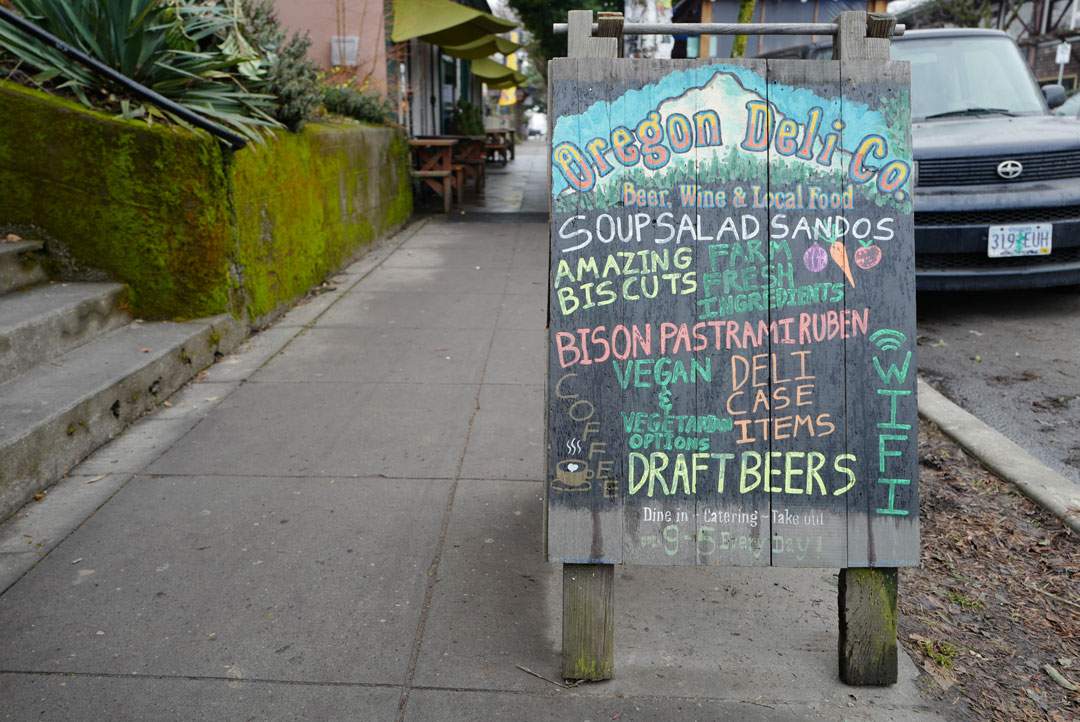 Oregon Deli Co.
Beer, Wine & Local Food
SOUP SALAD SANDOS
AMAZING
BISCUTS
FARM
FRESH
INGREDIENTS
BISON PASTRAMI RUBEN
COFFEE
VEGAN
&
VEGETARIAN
OPTIONS
DELI
CASE
ITEMS
WIFI
DRAFT BEERS
Dine in - Catering - Take out
9-5 Every Day!
319 EUH